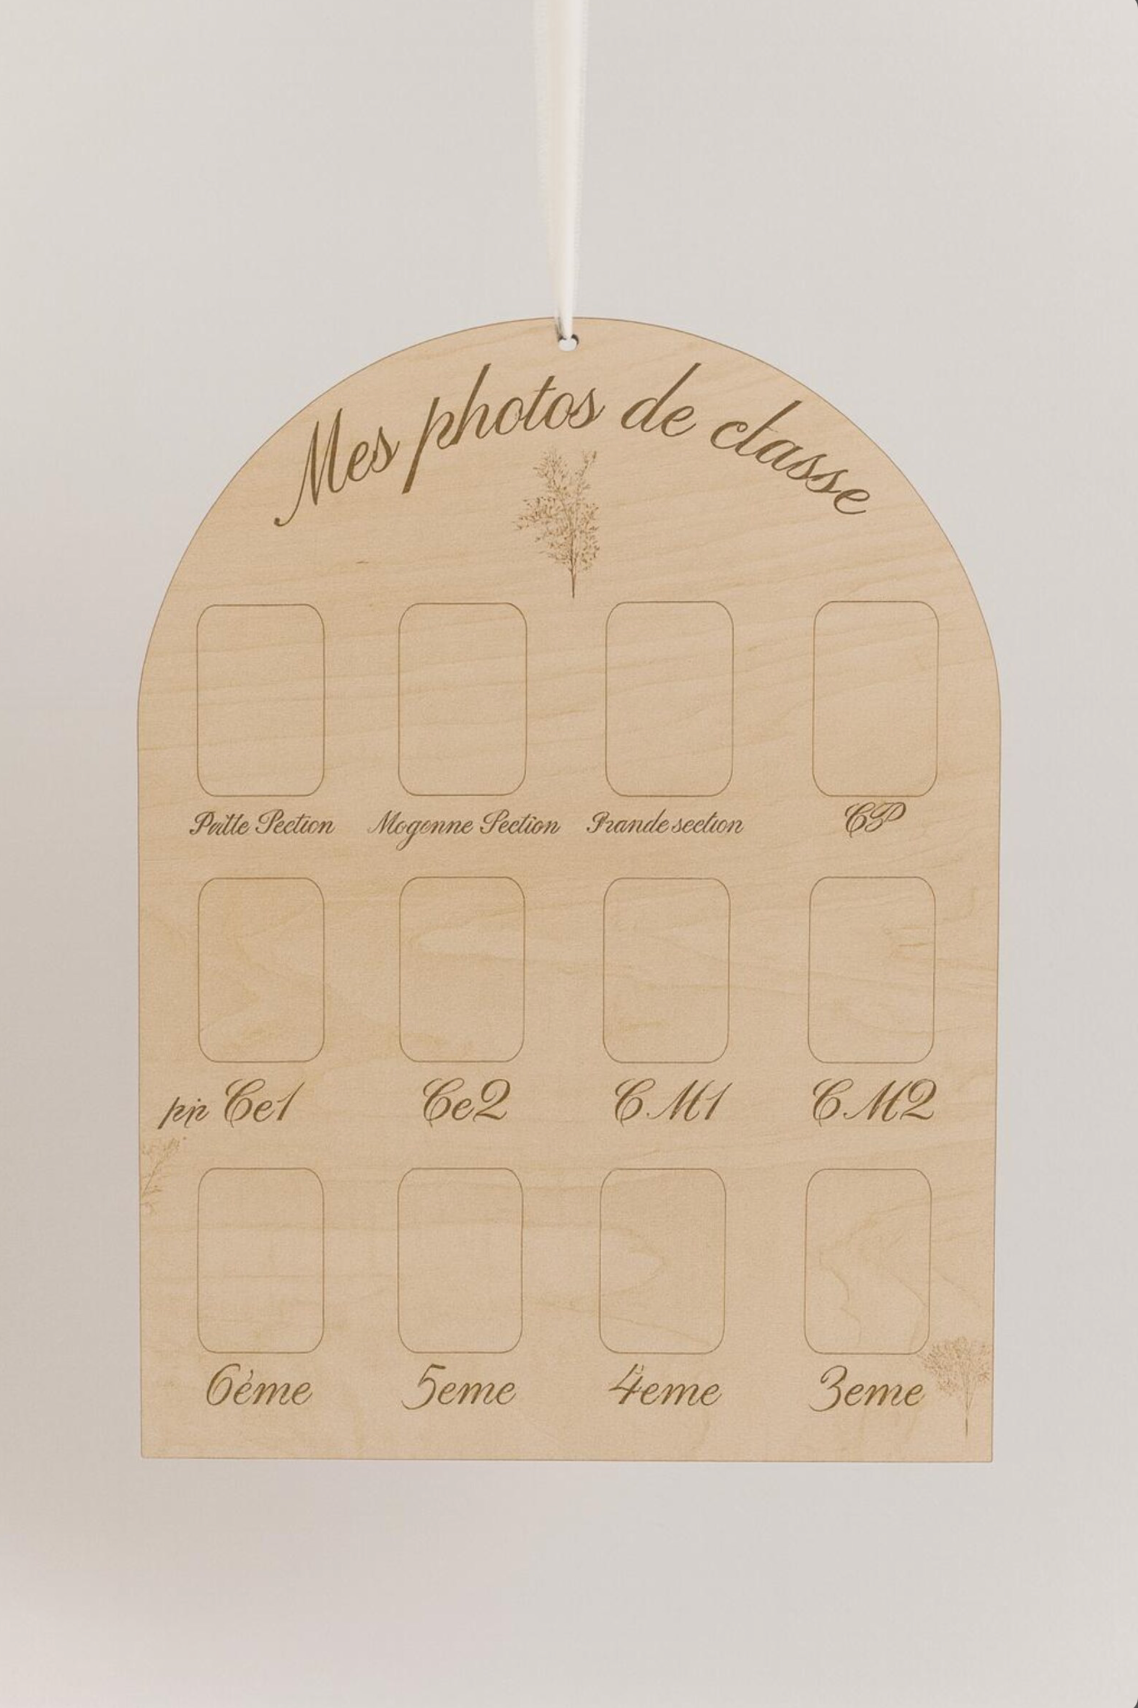 Mes photos de classe
Patte Section Mogenne Section Grande section CP
pp Ce1 Ce2 CM1 CM2
6ème 5eme 4eme 3eme